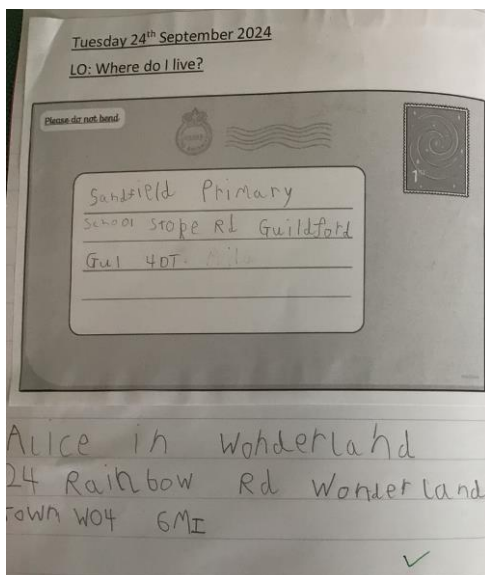 Tuesday 24th September 2024
LO: Where do I live?
Please do not bend
1st
Sandfield Primary
School Stope Rd Guildford
GU1 4DT.
Alice in Wonderland
24 Rainbow Rd Wonderland
Town WO4 6MI